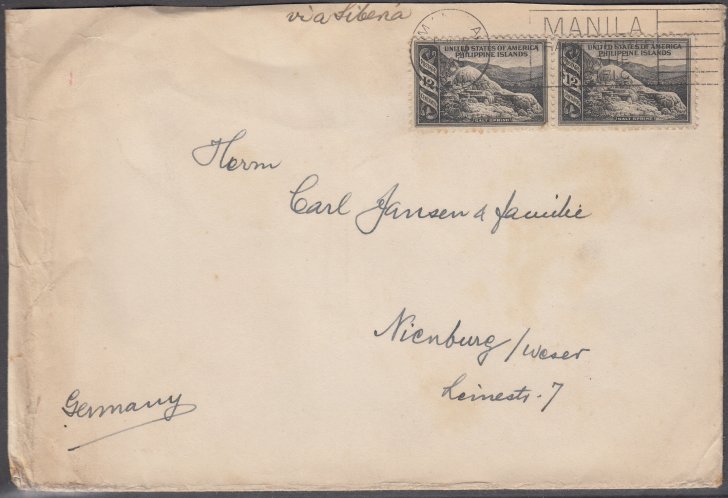 via Siberia
MANILA
UNITED STATES OF AMERICA
PHILIPPINE ISLANDS
12
SALT SPRING
UNITED STATES OF AMERICA
PHILIPPINE ISLANDS
12
SALT SPRING
Herrn
Carl Jansen & familie
Nienburg / Weser
Leinestr. 7
Germany